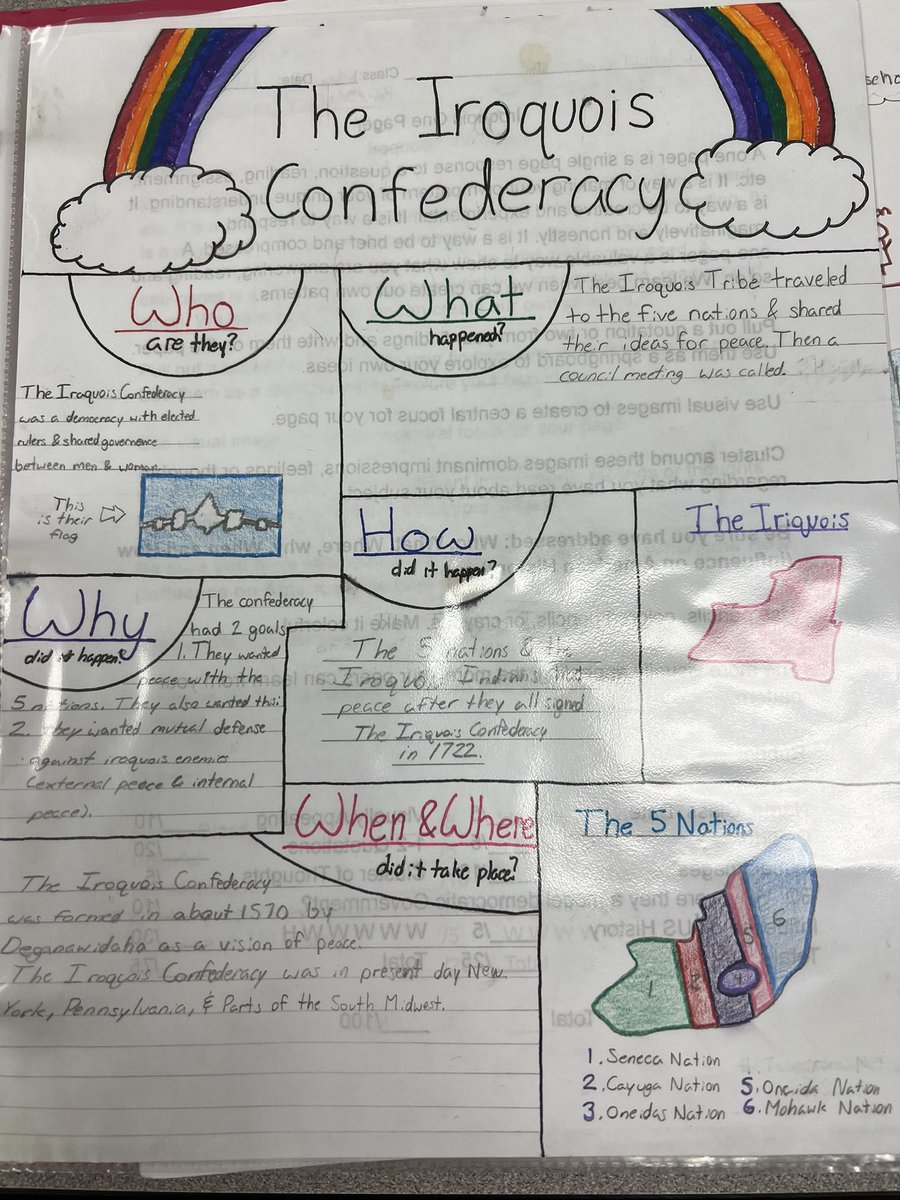 The Iroquois
Confederacy
Who
are they?
The Iraquois Confederacy
was a democracy with elected
rulers & shared governence
between men & woman.
This
is their
flag
What
happened?
The Iroquois Tribe traveled
to the five nations & shared
their ideas for peace. Then a
council meeting was called.
How
did it happen?
The 5 nations & the
Iroquois Indians had
peace after they all signed
The Iroquois Confederacy
in 1722.
The Iriquois
Why
did it happen?
The confederacy
had 2 goals
1. They wanted
peace with the
5 nations. They also wanted this:
2. They wanted mutual defense
against iroquois enemies
(external peace & internal
peace).
When & Where
did it take place?
The Iroquois Confederacy
was formed in about 1570 by
Deganawidaha as a vision of peace.
The Iroquois Confederacy was in present day New
York, Pennsylvania, & Parts of the South Midwest.
The 5 Nations
1
2
5
6
1. Seneca Nation
2. Cayuga Nation
3. Oneidas Nation
5. Oneida Nation
6. Mohawk Nation